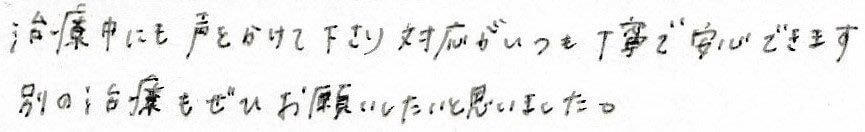 治療中にも声をかけて下さり対応がいつも丁寧で安心できます
別の治療もぜひお願いしたいと思いました。